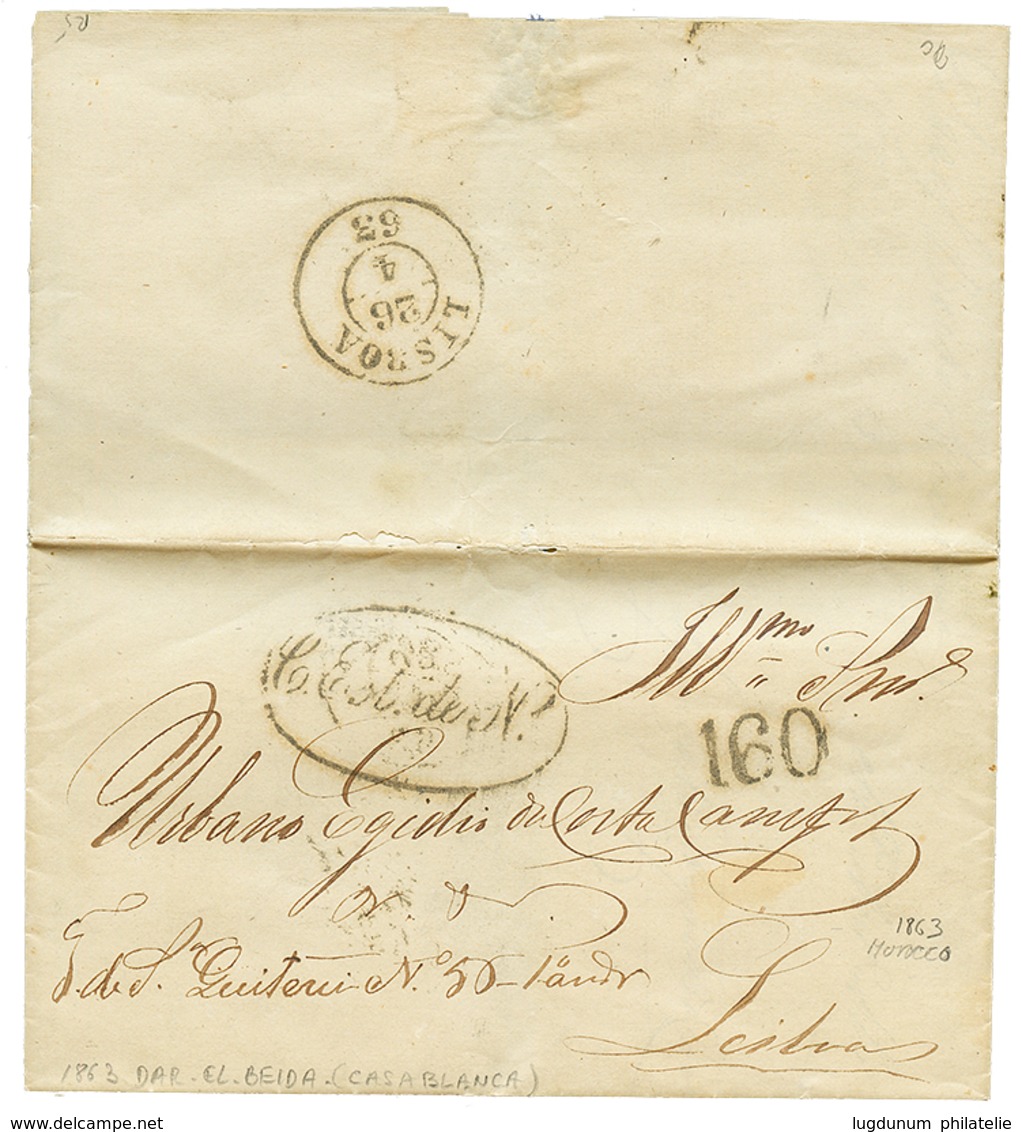 63
4
26
LISBOA
C. Est. de N.
Illmo Snr.
160
Urbano Egidio da Costa Campos
1863
MOROCCO
T. de Sta Quiteria No 56 - 1o andr
Lisboa
1863 DAR. EL. BEIDA. (CASABLANCA)
www.delcampe.net
lugdunum philatelie